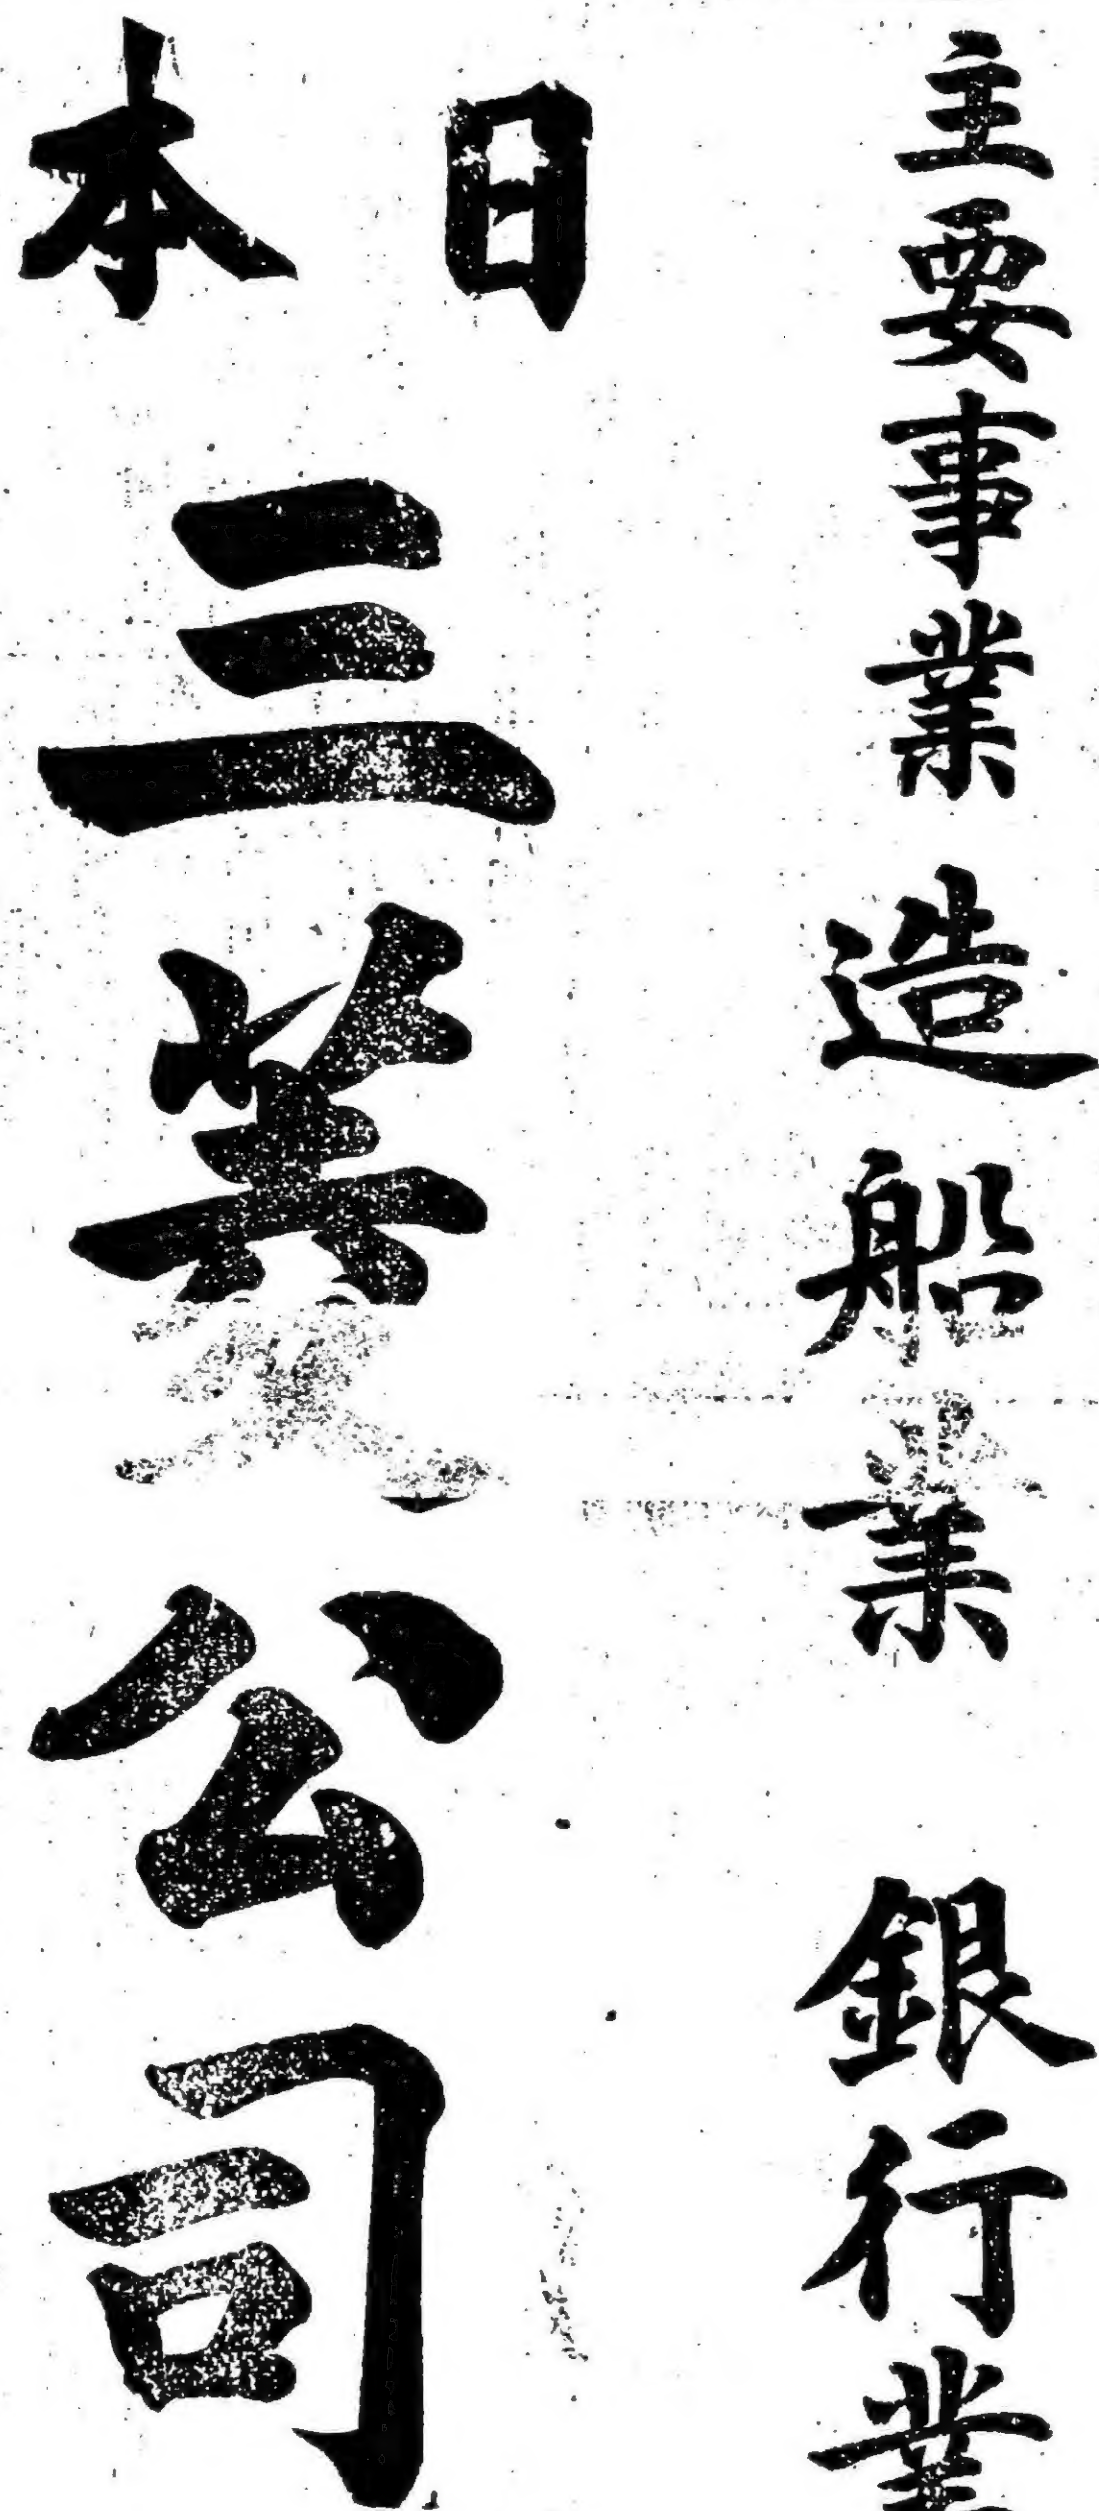 主要事業 造船業 銀行業
日本
三菱公司